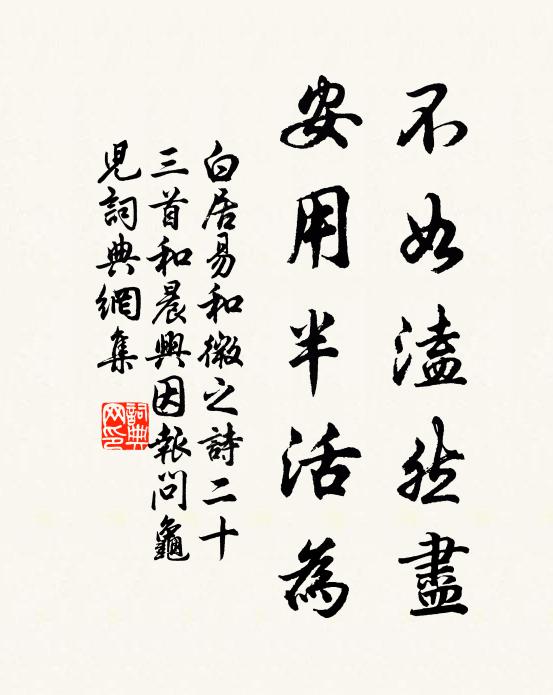 不如溘然盡
安用半活為
白居易和微之詩二十
三首和晨興因報問龜
兒詞典網集
詞典
网印